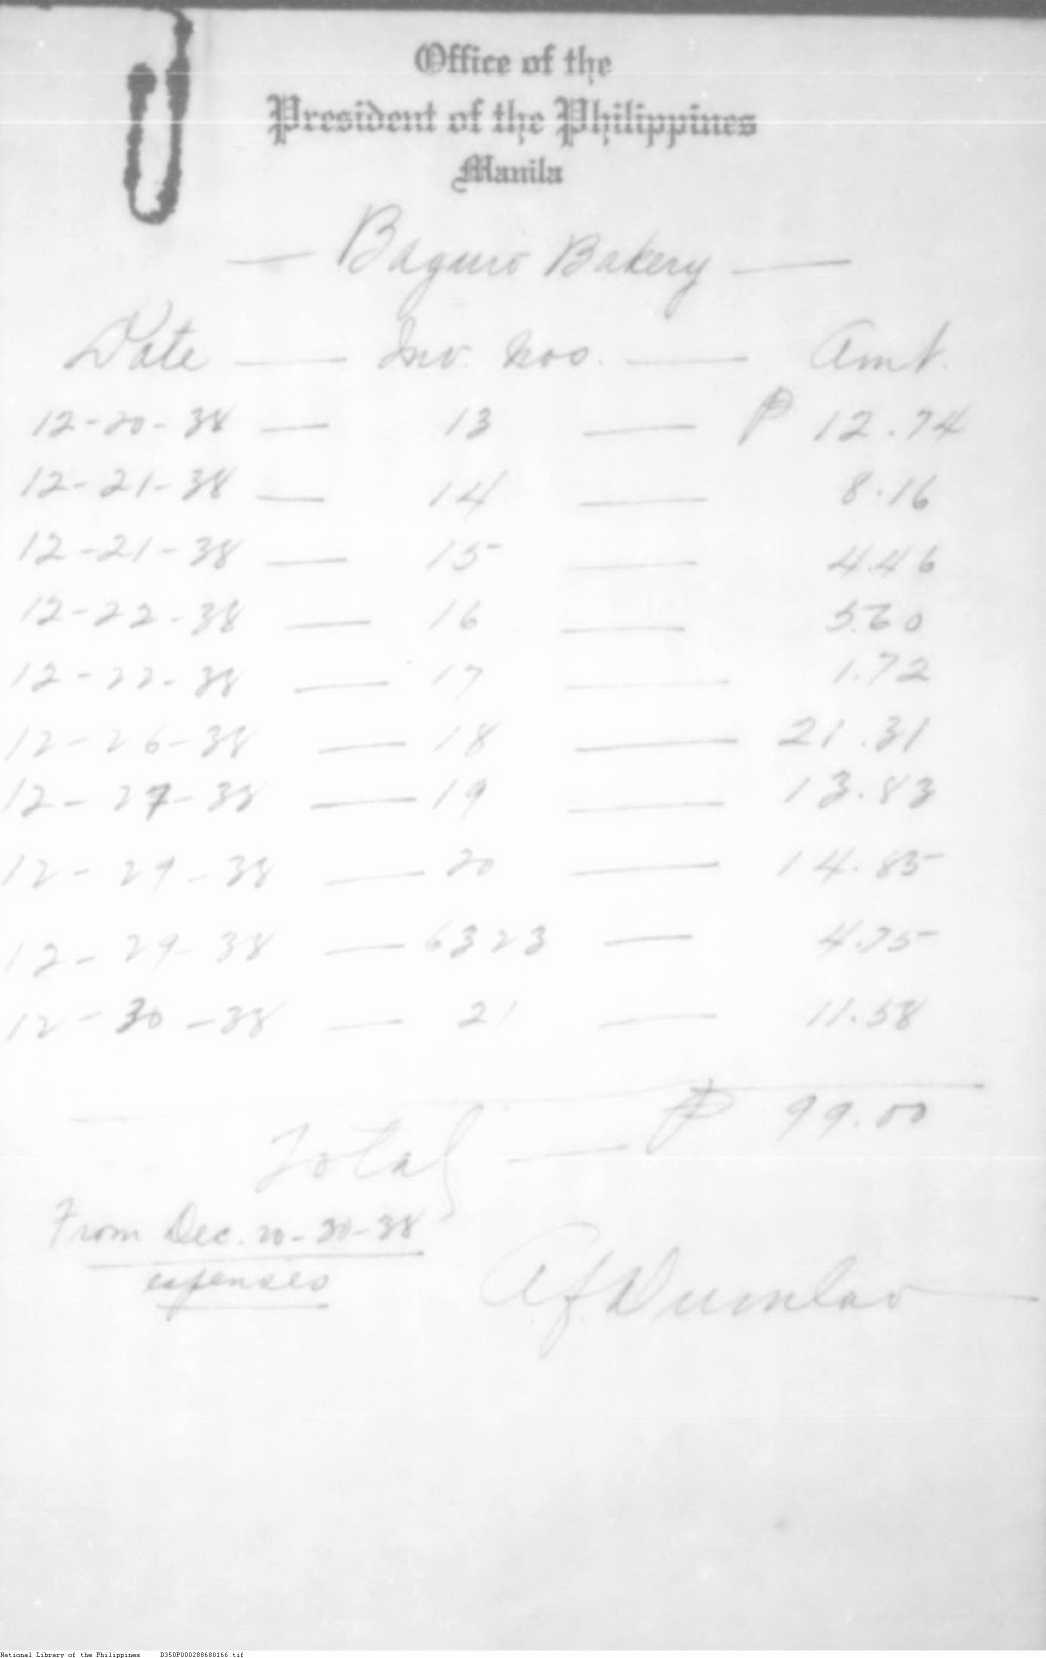 Office of the
President of the Philippines
Manila
— Baguio Bakery —
Date — Inv. Nos. — Amt.
12-20-38 — 13 — ₱ 12.74
12-21-38 — 14 — 8.16
12-21-38 — 15 — 4.46
12-22-38 — 16 — 5.60
12-22-38 — 17 — 1.72
12-26-38 — 18 — 21.31
12-27-38 — 19 — 13.83
12-29-38 — 20 — 14.85
12-29-38 — 6323 — 4.75
12-30-38 — 21 — 11.58
Total — ₱ 99.00
From Dec. 20-30-38
expenses
A.f. Dumlao
National Library of the Philippines D350P000288680166.tif